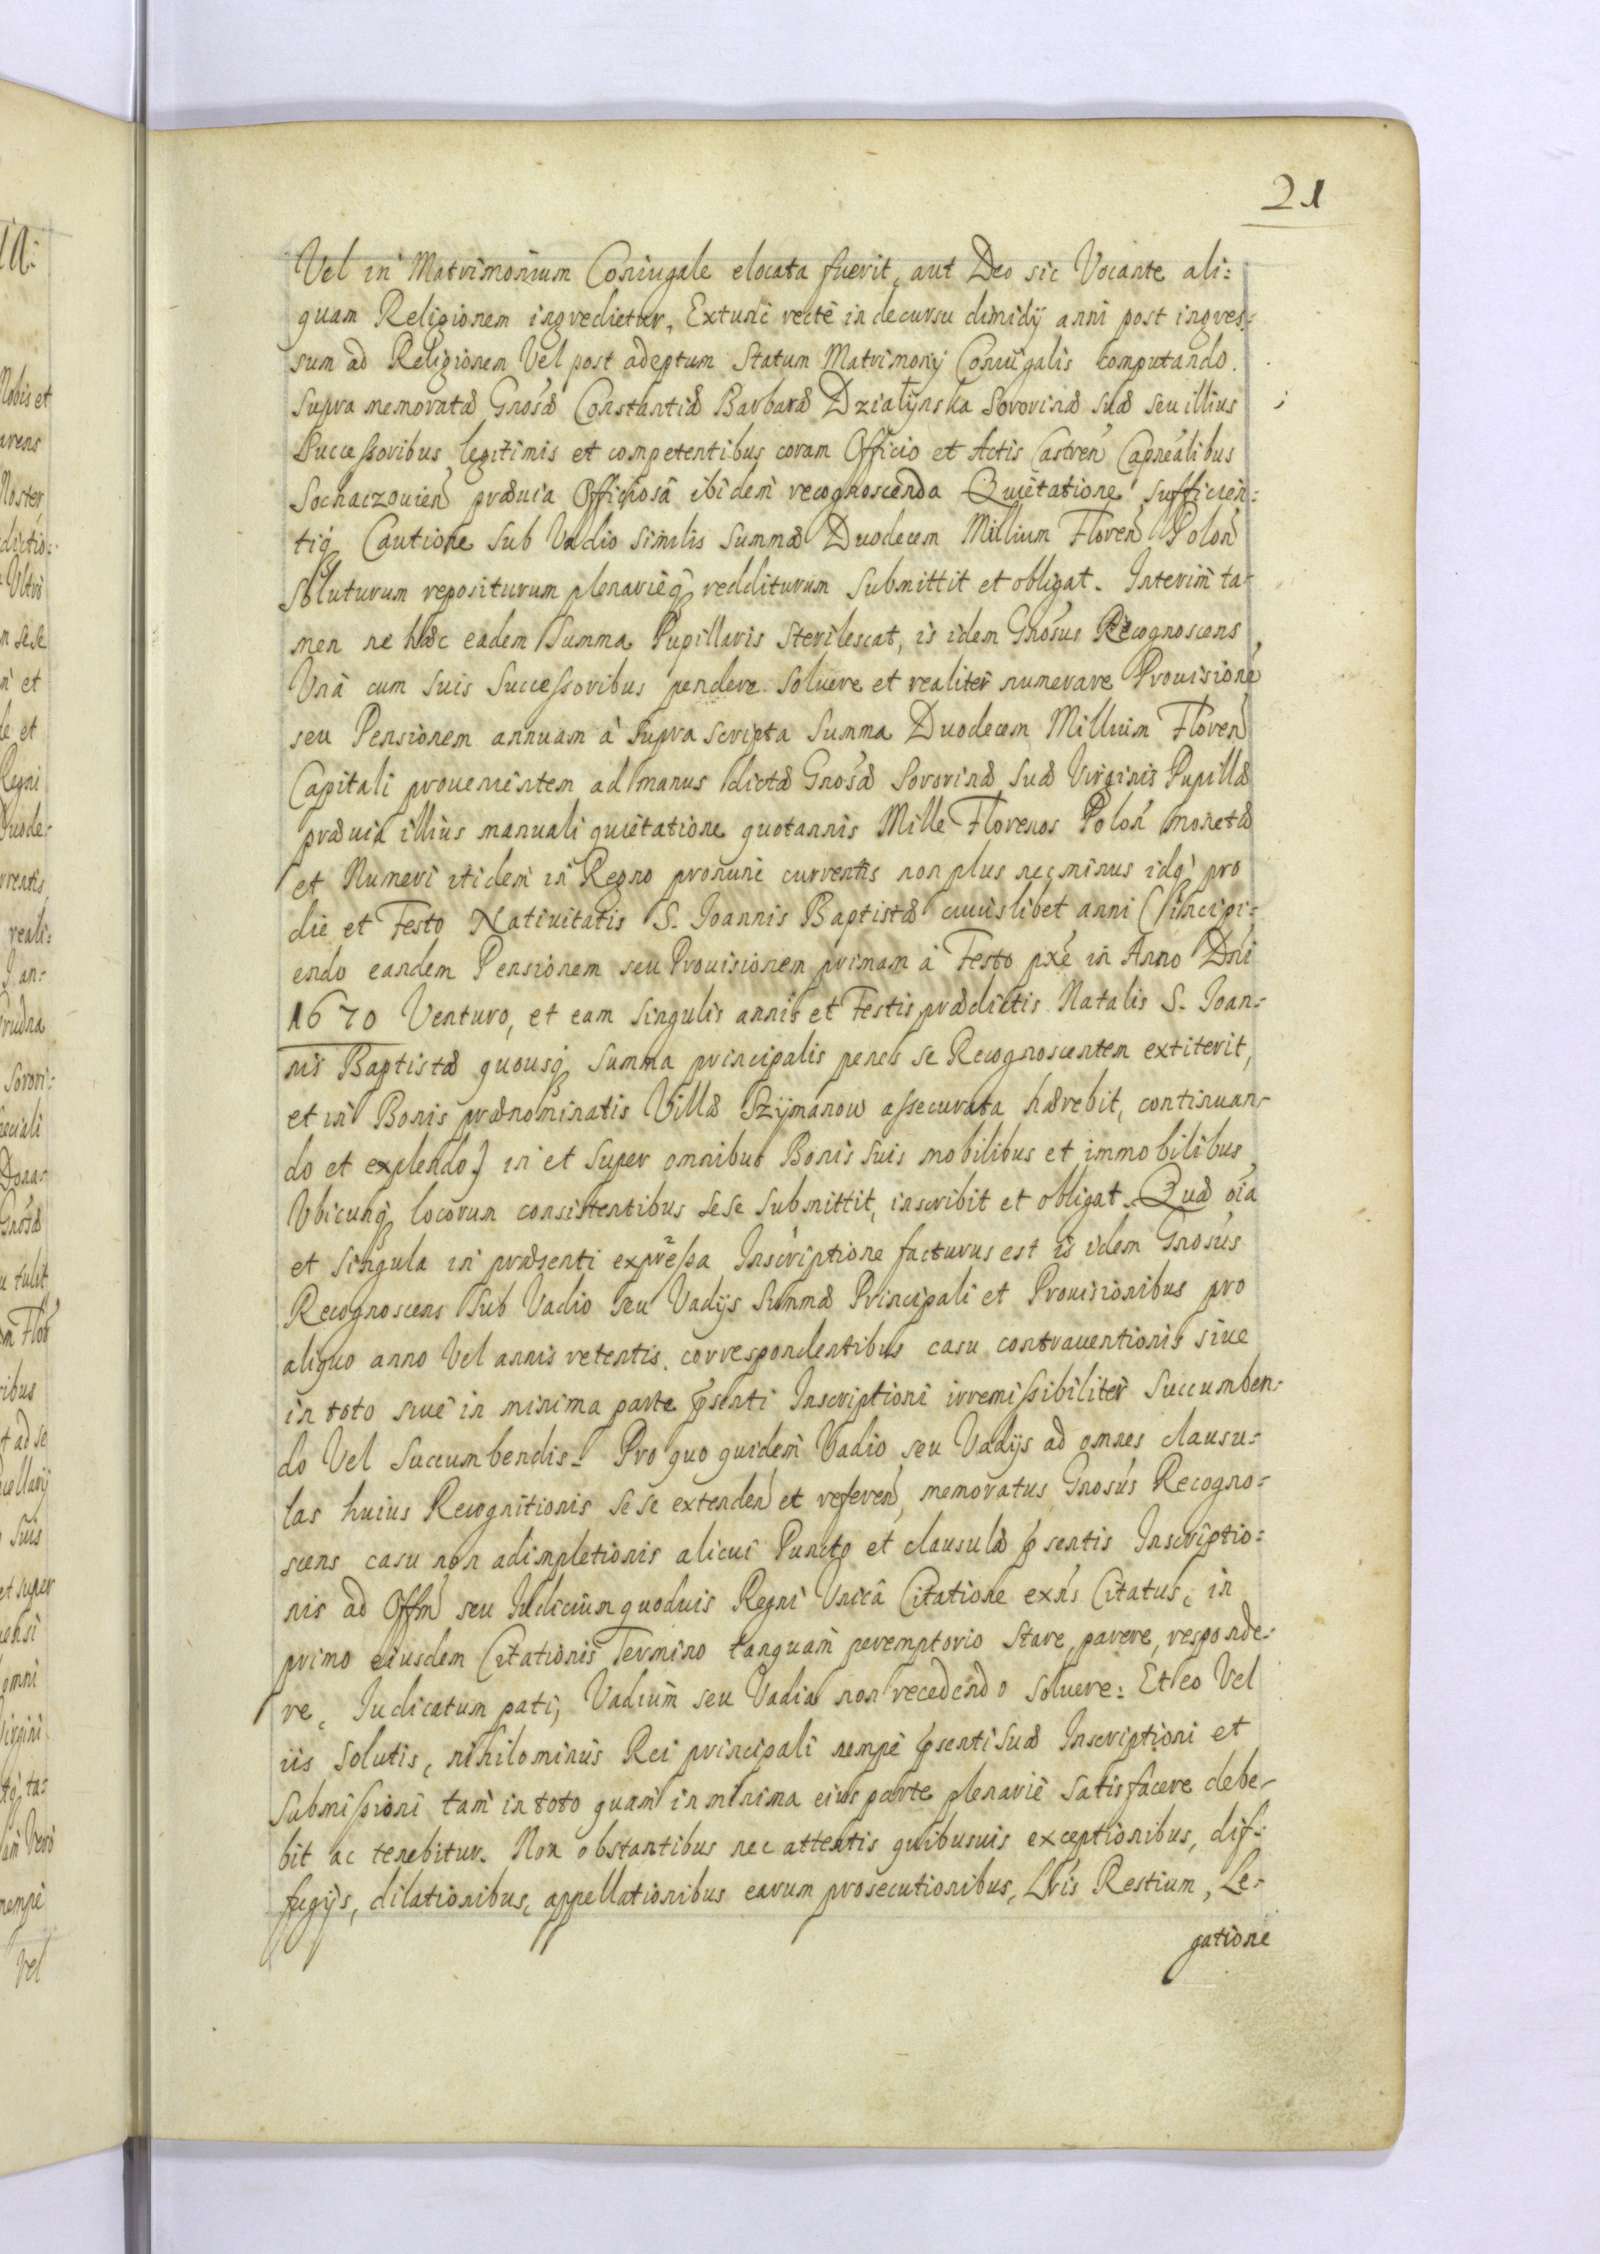 21
Vel in Matrimonium Coniugale elocata fuerit, aut Deo sic Vocante ali:
quam Religionem ingredietur, Extunc rectè in decursu dimidij anni post ingres:
sum ad Religionem Vel post adeptum Statum Matrimonij Coniugalis computando.
supra memoratæ Gnosæ Constantiæ Barbaræ Działynska Sororinæ suæ seu illius
Successoribus legitimis et competentibus coram Officio et Actis Castren Capnealibus
Sochaczouien præuia Officiosâ ibidem recognoscenda Quietatione sufficien:
tiq̃ Cautione sub Vadio similis summæ Duodecem Millium Floren Polon
soluturum repositurum plenarièq̃ redditurum submittit et obligat. Interim ta:
men ne hæc eadem Summa Pupillaris Sterilescat, is idem Gnosus Recognoscens
Unà cum suis Successoribus pendere soluere et realiter numerare Prouisionē
seu Pensionem annuam à supra scripta summa Duodecem Millium Floren
Capitali prouenientem ad manus dictæ Gnosæ Sororinæ suæ Virginis Pupillæ
præuia illius manuali quietatione quotannis Mille Florenos Polon monetæ
et Numeri itidem in Regno pronunc currentis non plus nec minus idq̃ pro
die et Festo Natiuitatis S. Joannis Baptistæ cuiuslibet anni (incipi:
endo eandem Pensionem seu Prouisionem primam à Festo pxe in Anno Dni
1670 Venturo, et eam singulis annis et Festis prædictis Natalis S. Joan:
nis Baptistæ quousq̃ summa principalis penes se Recognoscentem extiterit,
et in Bonis prænominatis Villæ Szymanow assecurata hærebit, continuan:
do et explendo) in et super omnibus Bonis suis mobilibus et immobilibus
Vbicunq̃ locorum consistentibus sese submittit, inscribit et obligat. Quæ oia
et singula in præsenti expressa Inscriptione facturus est is idem Gnosus
Recognoscens sub Vadio seu Vadijs summæ Principali et Prouisionibus pro
aliquo anno Vel annis retentis correspondentibus casu contrauentionis siue
in toto siue in minima parte psenti Inscriptioni irremissibiliter succumben:
do Vel succumbendis. Pro quo quidem Vadio seu Vadijs ad omnes clausu:
las huius Recognitionis sese extenden et referen, memoratus Gnosus Recogno:
scens casu non adimpletionis alicui Puncto et clausulæ psentis Inscriptio:
nis ad Offm seu Iudicium quoduis Regni Vnicâ Citatione exns Citatus, in
primo eiusdem Citationis Termino tanquam peremptorio stare, parere, responde:
re, Iudicatum pati, Vadium seu Vadia non recedendo soluere: Et eo Vel
iis solutis, nihilominus Rei principali nempe psenti suæ Inscriptioni et
submissioni tam in toto quam in minima eius parte plenariè satisfacere debe:
bit ac tenebitur. Non obstantibus nec attentis quibusuis exceptionibus, dif:
fugijs, dilationibus, appellationibus earum prosecutionibus, Lris Restium, Le:
gatione